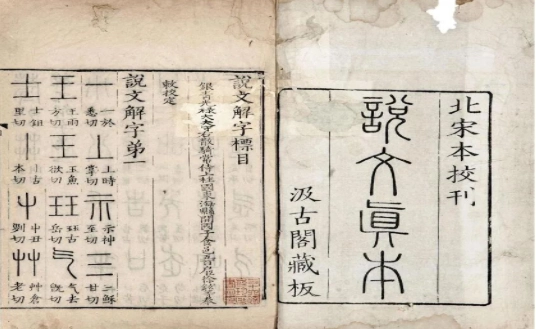 北宋本挍刊
說文眞本
汲古閣藏板
說文解字標目
銀青光祿大夫守右散騎常侍上柱國東海縣開國子食邑五百戶臣徐鉉等奉
敕挍定
說文解字弟一
一 一於悉切 丄 上時掌切 示 示神至切 三 三穌甘切
王 王雨方切 王 玉魚欲切 玨 玨古岳切 气 气去旣切
士 士鉏里切 丨 丨古本切 屮 屮丑切 艸 艸倉老切